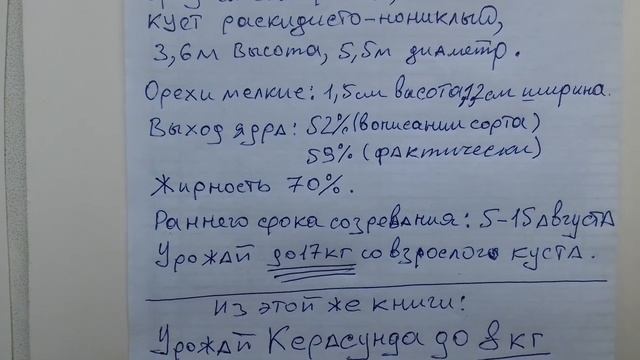 куст раскидисто-пониклый,
3,6м высота, 5,5м диаметр.
Орехи мелкие: 1,5см высота, 1,2см ширина.
Выход ядра: 52% (в описании сорта)
59% (фактически)
Жирность 70%.
Раннего срока созревания: 5-15 августа
Урожай до 17 кг со взрослого куста.
Из этой же книги:
Урожай Керасунда до 8 кг